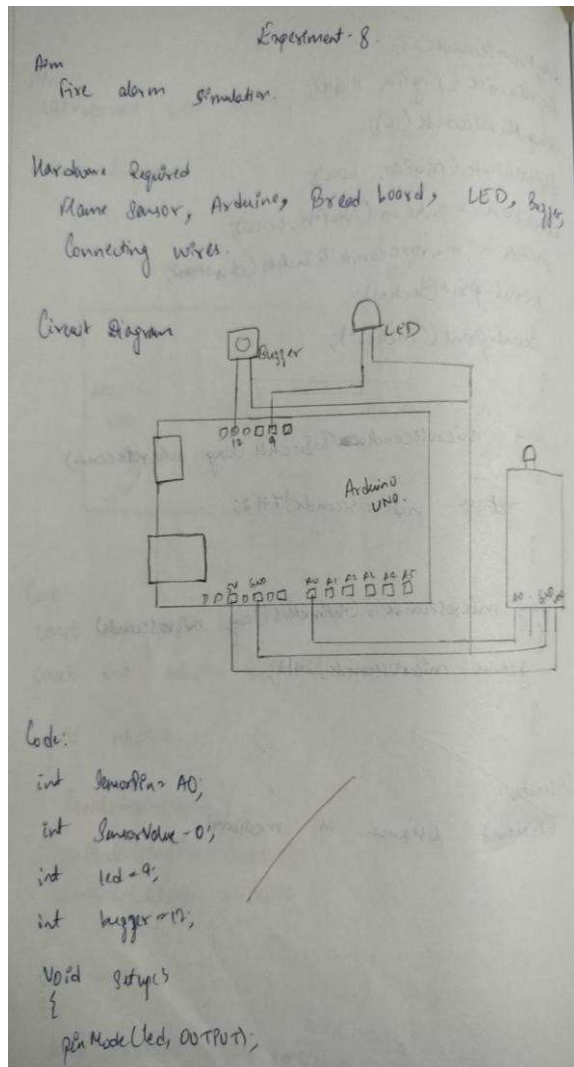 Experiment - 8.
Aim
Fire alarm simulation.
Hardware Required
Flame Sensor, Arduino, Bread board, LED, Buzzer,
Connecting wires.
Circuit Diagram
LED
Buzzer
12 9
Arduino
UNO.
5V GND A0 A1 A2 A3 A4 A5
A0 GND
Code:
int SensorPin = A0;
int SensorValue = 0;
int led = 9;
int buzzer = 12;
Void setup()
{
pinMode(led, OUTPUT);